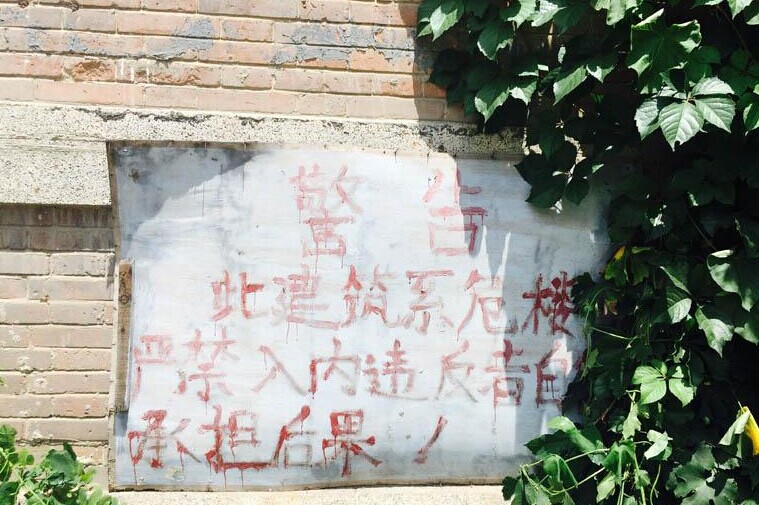 警告
此建筑系危楼
严禁入内违反者自
承担后果！